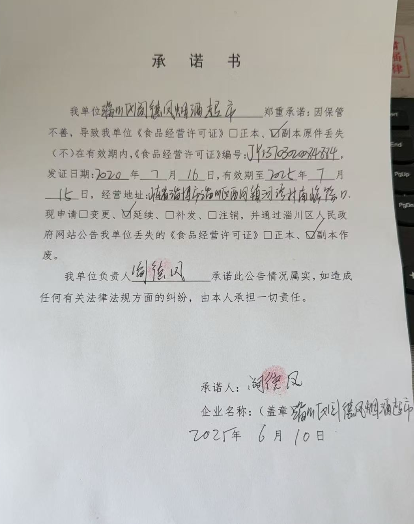 承诺书
我单位淄川区闫德凤烟酒超市郑重承诺：因保管
不善，导致我单位《食品经营许可证》□正本、☑副本原件丢失
（不）在有效期内，《食品经营许可证》编号：
发证日期：2020年7月16日，有效期至2025年7月
15日，经营地址：
现申请□变更、☑延续、□补发、□注销，并通过淄川区人民政
府网站公告我单位丢失的《食品经营许可证》□正本、☑副本作
废。
我单位负责人闫德凤承诺此公告情况属实，如造成
任何有关法律法规方面的纠纷，由本人承担一切责任。
承诺人：闫德凤
企业名称：（盖章）淄川区闫德凤烟酒超市
2025年6月10日